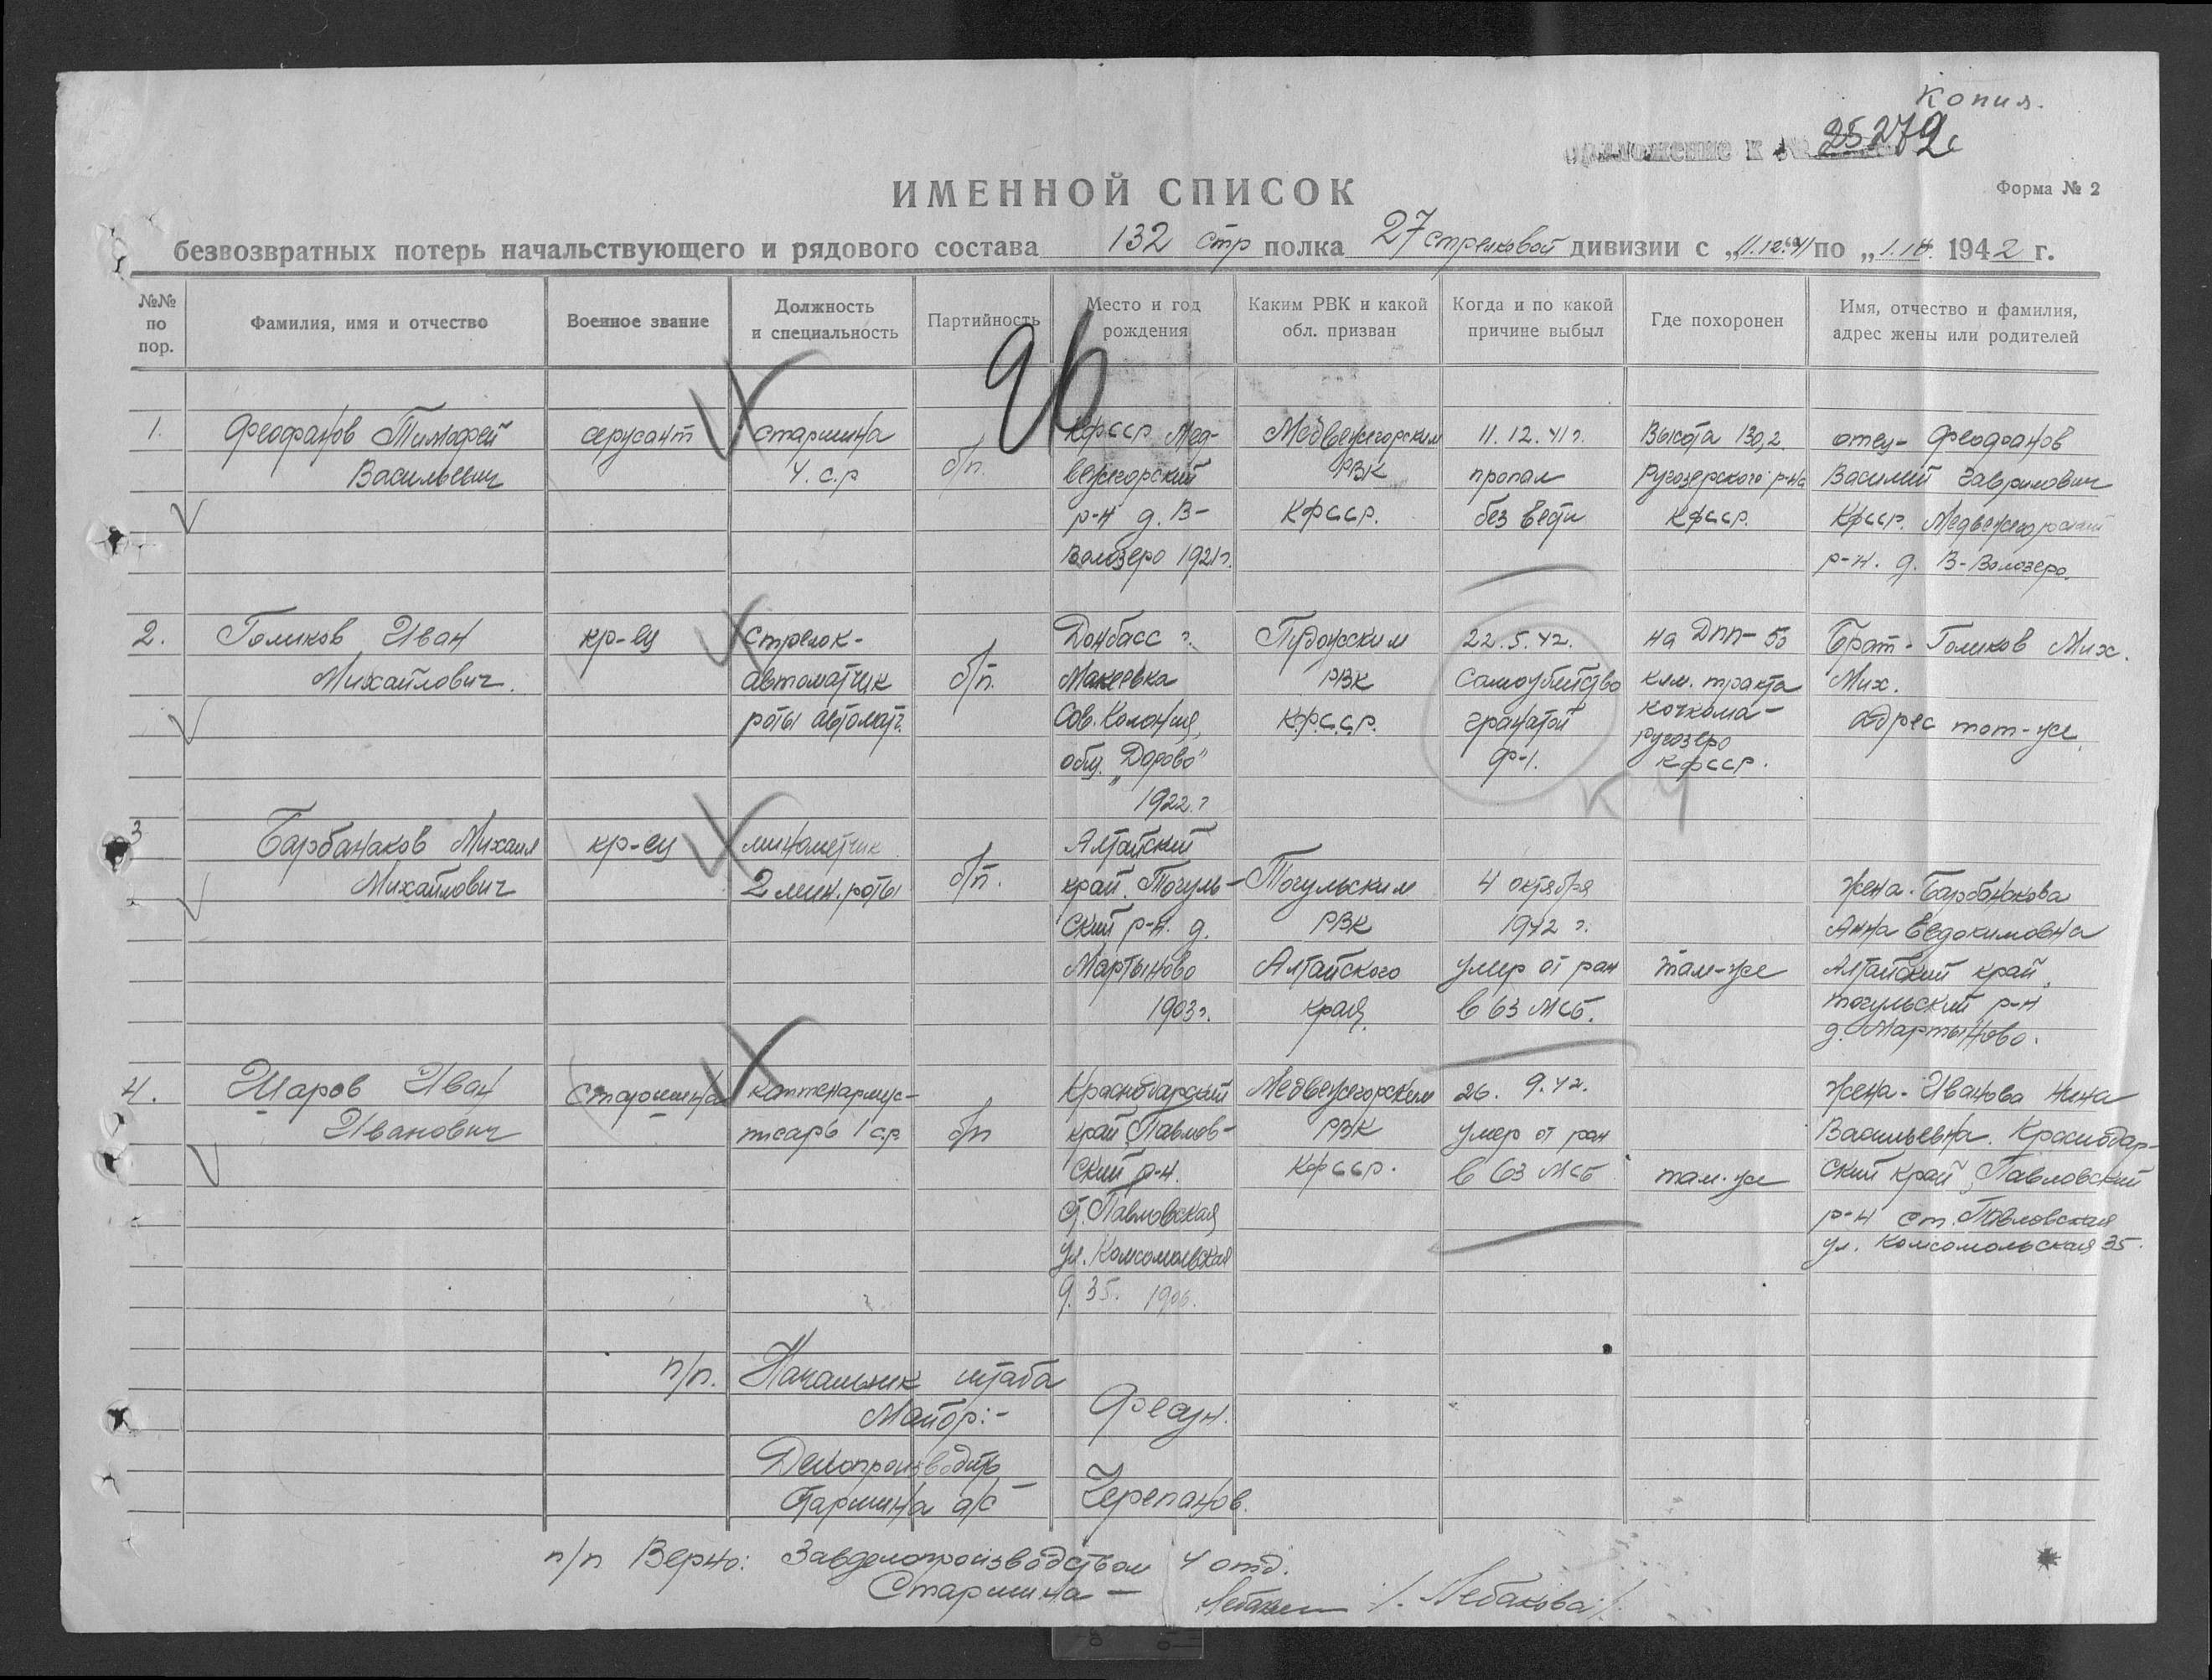 Копия.
приложение к № 25279с
ИМЕННОЙ СПИСОК
Форма № 2
безвозвратных потерь начальствующего и рядового состава 132 стр полка 27 стрелковой дивизии с „11.12.41 по „1.10. 1942 г.
№№ по пор.
Фамилия, имя и отчество
Военное звание
Должность и специальность
Партийность
Место и год рождения
Каким РВК и какой обл. призван
Когда и по какой причине выбыл
Где похоронен
Имя, отчество и фамилия, адрес жены или родителей
96
1.
Феофанов Тимофей
Васильевич
сержант
старшина
4. с.р
б/п.
КФССР Мед-
вежгорский
р-н д. В-
Волозеро 1921г.
Медвежегорским
РВК
КФССР.
11.12.41г.
пропал
без вести
Высота 130,2
Ругозерского р-на
КФССР.
отец- Феофанов
Василий Гаврилович
КФССР. Медвежегорский
р-н. д. В-Волозеро.
2.
Голиков Иван
Михайлович.
кр-ец
Стрелок-
автоматчик
роты автомат.
б/п.
Донбасс г.
Макеевка
Сов. Колония,
общ. „Дорово"
1922.г
Пудожским
РВК
К.Ф.С.С.Р.
22.5.42.
самоубийство
гранатой
Ф-1.
на ДПП-53
клм. тракта
кочкома-
ругозеро
КФССР.
Брат- Голиков Мих.
Мих.
Адрес тот-же.
К Ч
3
Барбанаков Михаил
Михайлович
кр-ец
минометчик
2 мин. роты
б/п.
Алтайский
край. Тогуль-
ский р-н. д.
Мартыново
1903г.
Тогульским
РВК
Алтайского
края.
4 октября
1942 г.
умер от ран
в 63 МСБ.
там-же
Жена- Барбанакова
Анна Евдокимовна
Алтайский край,
тогульский р-н
д. Мартыново.
4.
Шаров Иван
Иванович
Старшина
каптенармус-
писарь 1 с.р.
б/п
Краснодарский
край Павлов-
ский р-н.
ст. Павловская
ул. Комсомольская
д. 35. 1906.
Медвежегорским
РВК
КФССР.
26. 9.42.
умер от ран
в 63 МСБ
там-же
Жена- Иванова Нина
Васильевна. Краснодар-
ский край, Павловский
р-н ст. Павловская
ул. Комсомольская 35.
п/п. Начальник штаба
Майор:- Фесун.
Делопроизводит.
Старшина а/с Черепанов.
п/п Верно: Завделопроизводством 4 отд.
Старшина — /. Лебакова /.